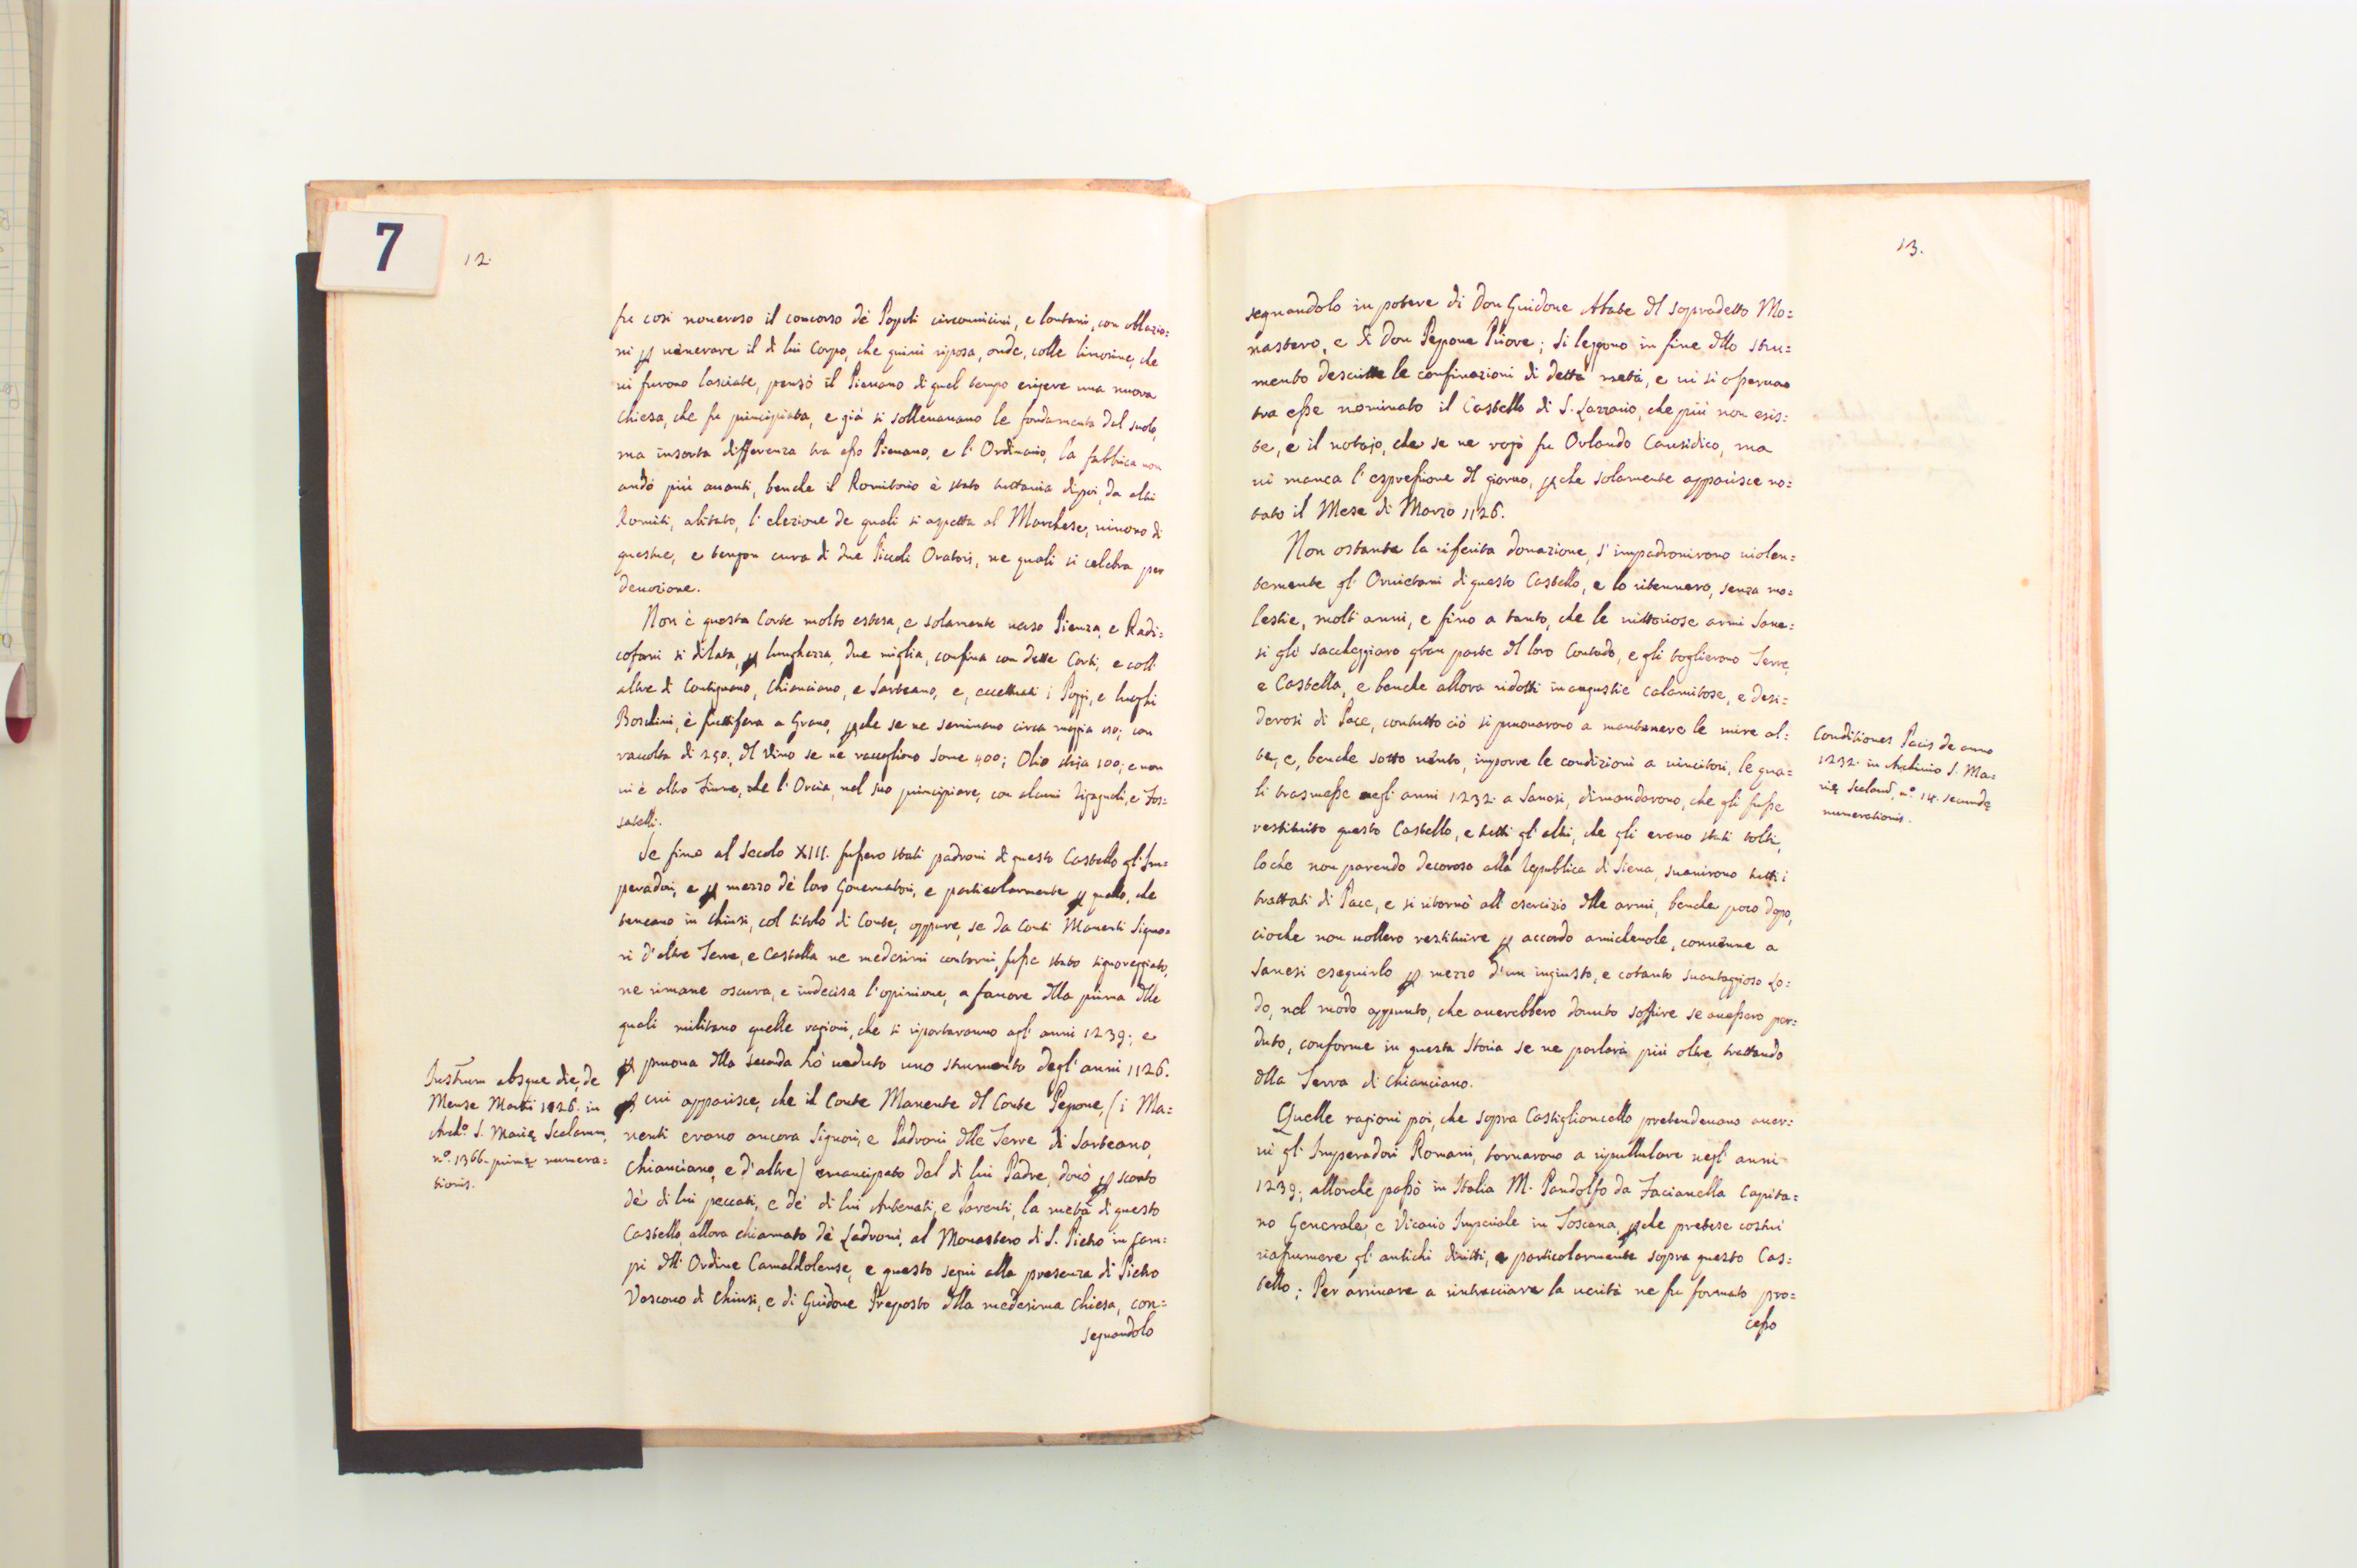 7
12.
fu così noveroso il concorso dè Popoli circonuicini, e lontani, con oblazio=
ni p uenerare il di lui Corpo, che quiui riposa, onde, colle limosine, che
ui furono lasciate, pensò il Pieuano di quel tempo erigere una nuova
Chiesa, che fu principiata, e già si solleuauano le fondamenta dal suolo,
ma insorta differenza tra esso Pieuano, e l'Ordinario, la fabbrica non
andò più auanti, benche il Romitorio è stato tuttauia dipoi, da altri
Romiti, abitato, l'elezione de quali si aspetta al Marchese, uiuono di
questue, e tengon cura di due Piccoli Oratori, ne quali si celebra per
deuozione.
Non è questa Corte molto estesa, e solamente uerso Pienza, e Radi=
cofani si dilata, p lunghezza, due miglia, confina con dette Corti, e coll'
altre di Contignano, Chianciano, e Sarteano, e, eccettuati i Poggi, e luoghi
Boschiui, è fruttifera a Grano, pche se ne seminano circa moggia 50; con
raccolta di 250; dl Vino se ne raccogliono some 400; Olio staja 100; e non
ui è altro Fiume, che l'Orcia, nel suo principiare, con alcuni Rigagnoli, e Fos=
satelli.
Se fino al Secolo XIII. fussero stati padroni di questo Castello gl'Im=
peradori, e p mezzo dè loro Gouernatori, e particolarmente p quello, che
teneano in Chiusi, col titolo di Conte, oppure, se da Conti Manenti Signo=
ri d'altre Terre, e Castella ne medesimi contorni, fusse stato signoreggiato,
ne rimane oscura, e indecisa l'opinione, a fauore dlla prima dlle
quali militano quelle ragioni, che si riportaranno agl'anni 1239; e
p pruoua dlla seconda hò ueduto uno strumento degl'anni 1126.
p cui apparisce, che il Conte Manente dl Conte Pepone, (i Ma=
nenti erano ancora Signori, e Padroni dlle Terre di Sarteano,
Chianciano, e d'altre) emancipato dal di lui Padre, donò p sconto
dè di lui peccati, e dè di lui Antenati, e Parenti, la metà di questo
Castello, allora chiamato dè Ladroni, al Monastero di S. Pietro in Cam=
pi dll'Ordine Camaldolense, e questo seguì alla presenza di Pietro
Vescouo di Chiusi, e di Guidone Preposto dlla medesima Chiesa, con=
segnandolo
Instrum absque die, de
Mense Martii 1126. in
Archo. S. Marię Scalarum,
no. 1366. primę numera=
tionis.
13.
segnandolo in potere di Don Guidone Abate dl sopradetto Mo=
nastero, e di Don Pepone Priore; Si leggono in fine dllo stru=
mento descritte le confinazioni di detta metà, e ui si osseruao
tra esse nominato il Castello di S. Lazzario, che più non esis=
te, e il notajo, che se ne rogò fu Orlando Causidico, ma
ui manca l'espressione dl giorno, pche solamente apparisce no=
tato il Mese di Marzo 1126.
Non ostante la riferita donazione, s'impadronirono uiolen=
temente gl'Oruietani di questo Castello, e lo ritennero, senza mo=
lestie, molt'anni, e fino a tanto, che le uittoriose armi Sane=
si gli saccheggiaro gran parte dl loro Contado, e gli toglierono Terre,
e Castella, e benche allora ridotti in angustie calamitose, e desi=
derosi di Pace, contutto ciò si pruouarono a mantenere le mire al=
te, e, benche sotto uinto, imporre le condizioni a uincitori, le qua=
li trasmesse negl'anni 1232. a Sanesi, dimandorono, che gli fusse
restituito questo Castello, e tutti gl'altri, che gli erano stati tolti,
loche non parendo decoroso alla Republica di Siena, suanirono tutti i
trattati di Pace, e si ritornò all'esercizio dlle armi, benche poco dopo,
cioche non uollero restituire p accordo amicheuole, conuenne a
Sanesi eseguirlo p mezzo d'un ingiusto, e cotanto suantaggioso Lo=
do, nel modo appunto, che auerebbero douuto soffrire se auessero per=
duto, conforme in questa Storia se ne parlarà più oltre, trattando
dlla Terra di Chianciano.
Quelle ragioni poi, che sopra Castiglioncello pretendeuano auer=
ui gl'Imperadori Romani, tornarono a ripullulare negl'anni
1239; allorche passò in Italia M. Pandolfo da Facianella Capita=
no Generale, e Vicario Imperiale in Toscana, pche pretese costui
riassumere gl'antichi diritti, e particolarmente sopra questo Cas=
tello; Per arriuare a rintracciare la uerità ne fu formato pro=
cesso
Conditiones Pacis de anno
1232. in Archiuio S. Ma=
rię Scalarū, no. 14. secundę
numerationis.